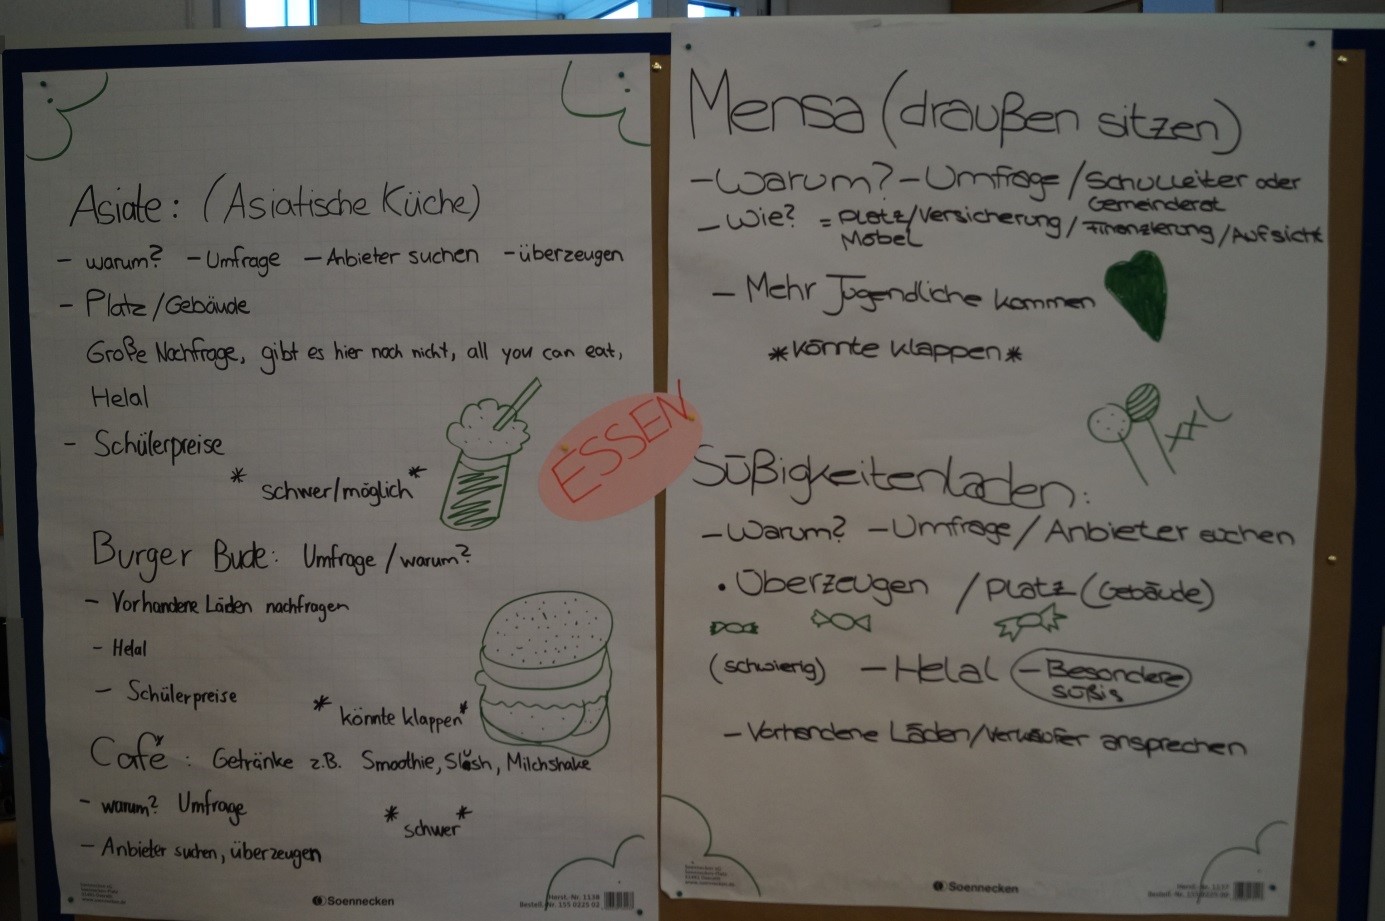 Asiate: (Asiatische Küche)
- warum? - Umfrage - Anbieter suchen - überzeugen
- Platz/Gebäude
Große Nachfrage, gibt es hier noch nicht, all you can eat,
Helal
- Schülerpreise
* schwer/möglich *
Burger Bude: Umfrage / warum?
- Vorhandene Läden nachfragen
- Helal
- Schülerpreise
* könnte klappen *
Café: Getränke z.B. Smoothie, Slush, Milchshake
- warum? Umfrage
* schwer *
- Anbieter suchen, überzeugen
Soennecken
Bestell. Nr. 155 0225 02
ESSEN
Mensa (draußen sitzen)
- Warum? - Umfrage / Schulleiter oder
Gemeinderat
- Wie? = Platz/Versicherung/Finanzierung/Aufsicht
Möbel
- Mehr Jugendliche kommen
*könnte klappen*
XXL
Süßigkeitenladen:
- Warum? - Umfrage / Anbieter suchen
• Überzeugen / Platz (Gebäude)
(schwierig) - Helal - Besondere
süßis
- Vorhandene Läden/Verkäufer ansprechen
Soennecken